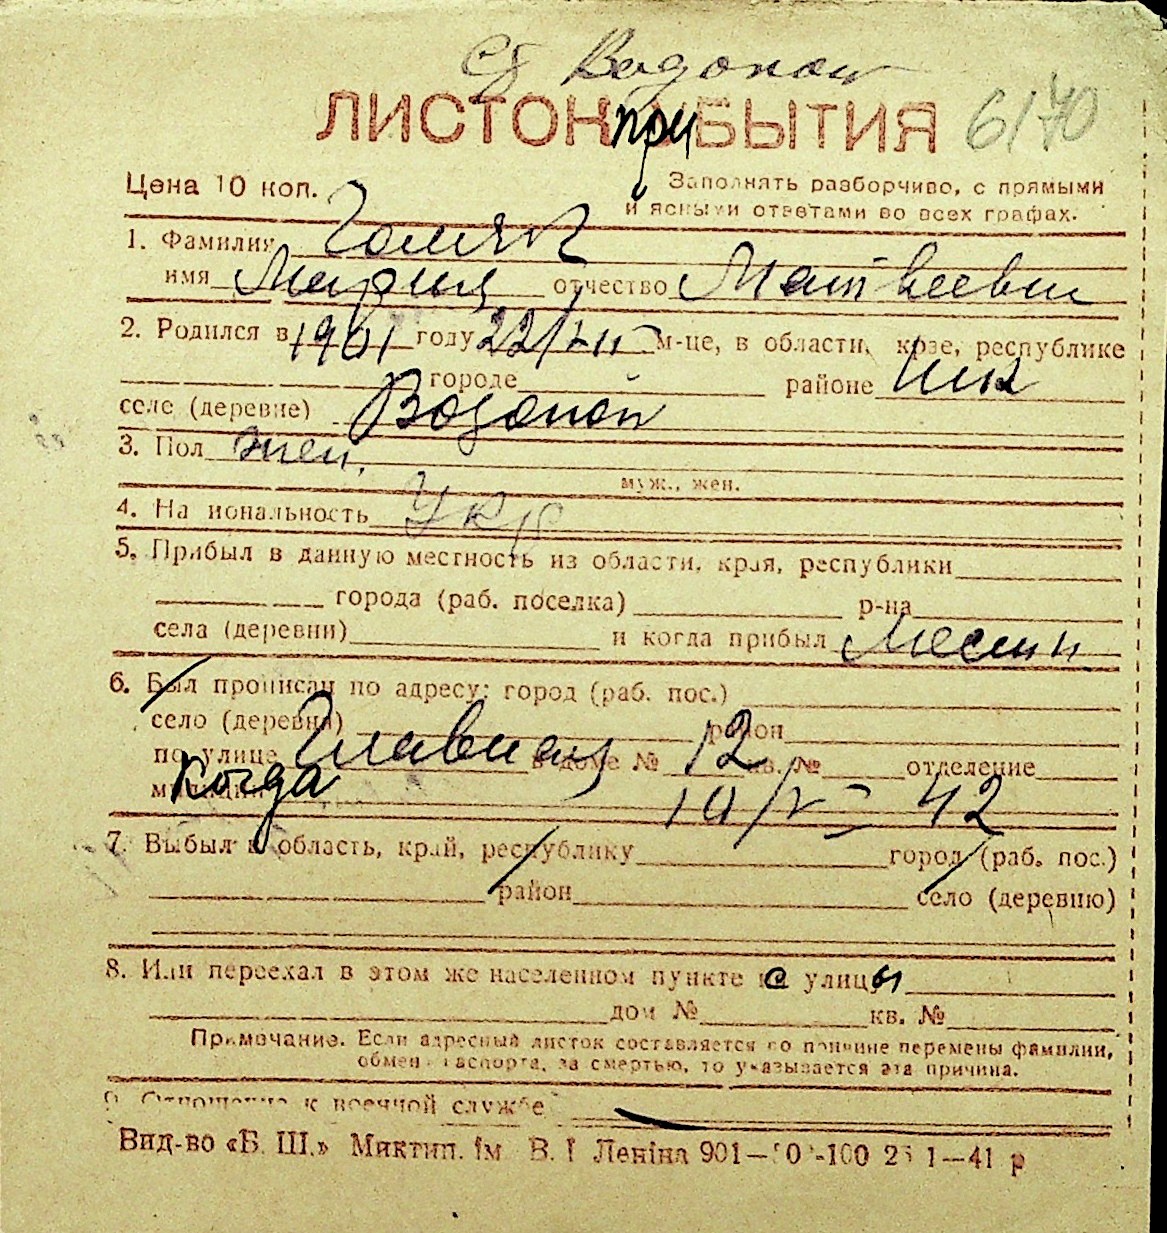 Ст Водопой
ЛИСТОК при БЫТИЯ 6/70
Цена 10 коп.
Заполнять разборчиво, с прямыми
и ясными ответами во всех графах.
1. Фамилия
имя Мария отчество Матвеевн
2. Родился в 1901 году 22/VII м-це, в области, крае, республике
городе районе Ник
селе (деревне) Водопой
3. Пол жен.
муж., жен.
4. На иональность Укр
5. Прибыл в данную местность из области, края, республики
города (раб. поселка) р-на
села (деревни) и когда прибыл Местн
6. Был прописан по адресу: город (раб. пос.)
село (деревня) район
по улице Главная в доме № 12 кв. № отделение
милиции когда 10/V 42
7. Выбыл в область, край, республику город (раб. пос.)
район село (деревню)
8. Или переехал в этом же населенном пункте с улицы
дом № кв. №
Примечание. Если адресный листок составляется по причине перемены фамилии,
обмен паспорта, за смертью, то указывается эта причина.
9. Отношение к военной службе
Вид-во «Б. Ш.» Миктип. ім В. І Леніна 901— 100 1—41 р